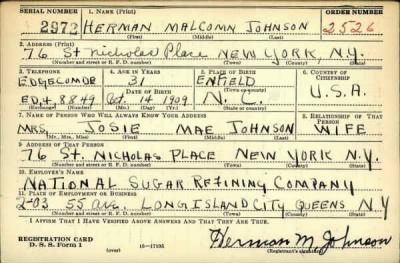 SERIAL NUMBER 1. Name (Print) ORDER NUMBER
2972 HERMAN MALCOMN JOHNSON 2526
(First) (Middle) (Last)
2. Address (Print)
76 St Nicholas Place NEW YORK, N.Y.
(Number and street or R. F. D. number) (Town) (County) (State)
3. Telephone 4. Age in Years 5. Place of Birth 6. Country of Citizenship
EDGECOMBE 31 ENFIELD
Date of Birth (Town or county) U.S.A.
ED.4 8849 Oct. 14 1909 N.C.
(Exchange) (Number) (Mo.) (Day) (Yr.) (State or country)
7. Name of Person Who Will Always Know Your Address 8. Relationship of That Person
MRS. JOSIE MAE JOHNSON WIFE
(Mr., Mrs., Miss) (First) (Middle) (Last)
9. Address of That Person
76 St. NICHOLAS PLACE NEW YORK N.Y.
(Number and street or R. F. D. number) (Town) (County) (State)
10. Employer's Name
NATIONAL SUGAR REFINING COMPANY
11. Place of Employment or Business
2-03 55 ave. LONG ISLAND CITY QUEENS N.Y
(Number and street or R. F. D. number) (Town) (County) (State)
I Affirm That I Have Verified Above Answers and That They Are True.
REGISTRATION CARD
D. S. S. Form 1 (over) 16—17105 Herman M. Johnson
(Registrant's signature)